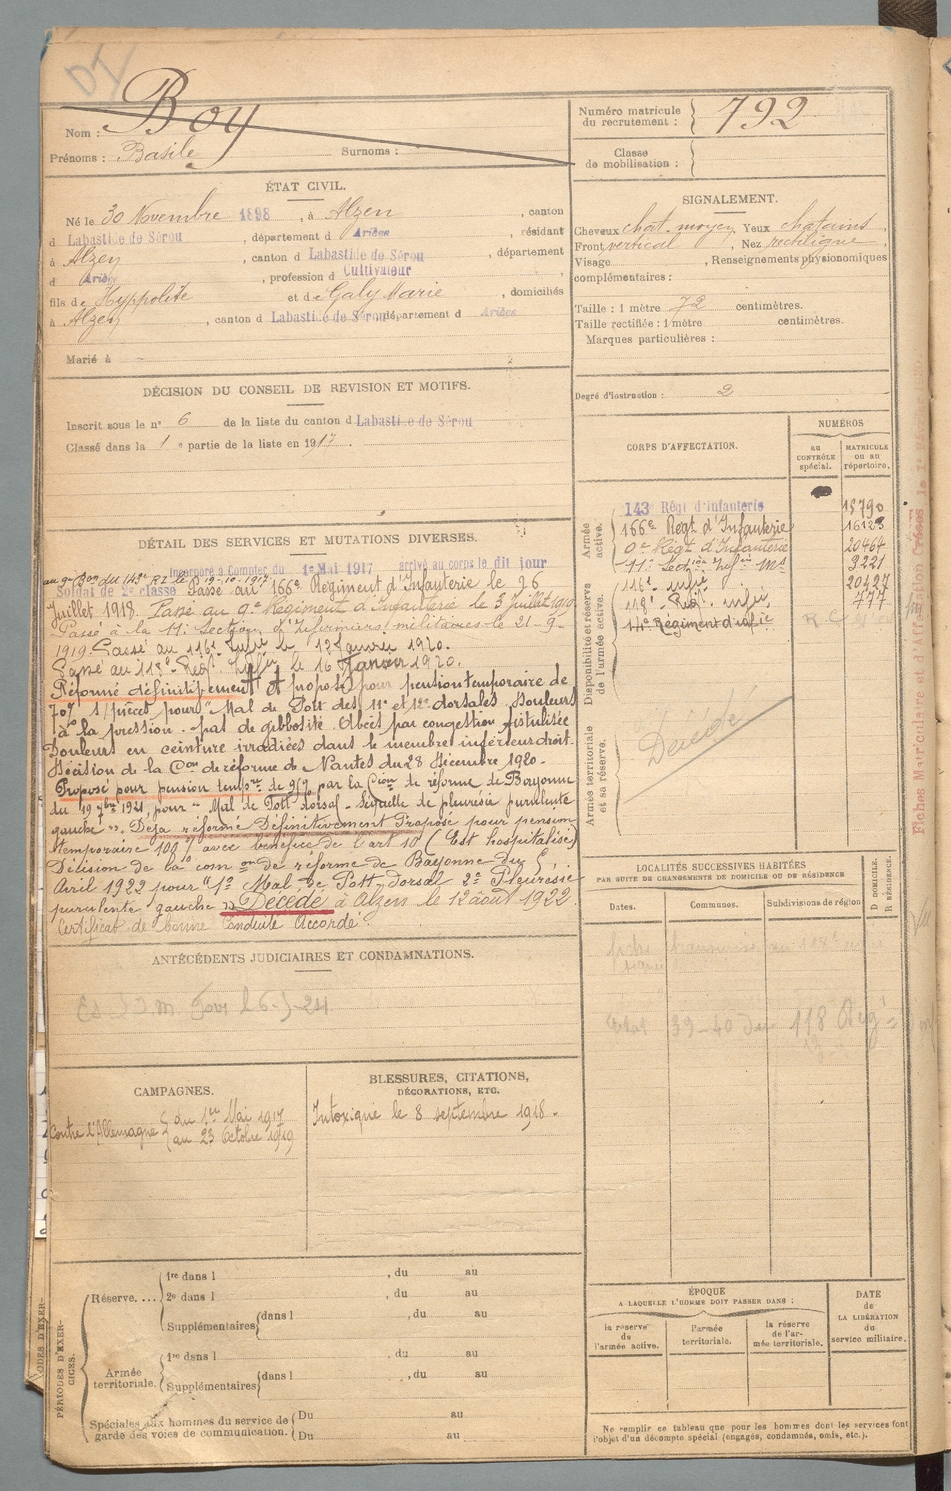 Nom : Boy
Prénoms : Basile Surnoms :
Numéro matricule
du recrutement : 792
Classe
de mobilisation :
ÉTAT CIVIL.
Né le 30 Novembre 1898, à Alzen, canton
d Labastide de Sérou, département d Ariège, résidant
à Alzen, canton d Labastide de Sérou, département
d Ariège, profession de Cultivateur
fils de Hyppolite et de Galy Marie, domiciliés
à Alzen, canton d Labastide de Sérou département d Ariège
Marié à
SIGNALEMENT.
Cheveux chat. moyen, Yeux chatains
Front vertical, Nez rectiligne.
Visage , Renseignements physionomiques
complémentaires :
Taille : 1 mètre 72 centimètres.
Taille rectifiée : 1 mètre centimètres.
Marques particulières :
Degré d'instruction : 2
DÉCISION DU CONSEIL DE REVISION ET MOTIFS.
Inscrit sous le n° 6 de la liste du canton d Labastide de Sérou
Classé dans la 1e partie de la liste en 1917.
DÉTAIL DES SERVICES ET MUTATIONS DIVERSES.
Incorporé à Compter du 1er Mai 1917 arrivé au corps le dit jour
au 9e Bon du 143e RI le 19-10-1917
Soldat de 2e classe Passé au 166e Régiment d'Infanterie le 26
Juillet 1918. Passé au 9e Régiment d'Infanterie le 3 Juillet 1919
Passé à la 11e Section d'Infirmiers militaires le 21-9-
1919. Passé au 116e Infie le 12 Janvier 1920.
Passé au 118e Régt Infie le 16 Janvier 1920.
Réformé définitivement et proposé pour pension temporaire de
70% pour "Mal de Pott des 11e et 12e dorsales. Douleurs
à la pression. pas de gibbosité. Abcès par congestion fistulisée
Douleurs en ceinture irradiées dans le membre inférieur droit.
Décision de la Con de réforme de Nantes du 28 Décembre 1920.
Proposé pour pension tempre de 95% par la Cion de réforme de Bayonne
du 19 7bre 1921, pour "Mal de Pott dorsal - Séquelle de pleurésie purulente
gauche". Déjà réformé Définitivement Proposé pour pension
temporaire 100% avec bénéfice de l'art 10 (Est hospitalisé)
Décision de la com on de réforme de Bayonne du
Avril 1922 pour "1° Mal de Pott dorsal 2° Pleurésie
purulente gauche" Décédé à Alzen le 12 août 1922.
Certificat de bonne Conduite Accordé.
CORPS D'AFFECTATION.
NUMÉROS
au
CONTRÔLE
spécial.
MATRICULE
ou au
répertoire.
Armée
active.
143 Régt d'Infanterie 18790
166e Régt d'Infanterie 16123
9e Régt d'Infanterie 20464
11e Section Infirs Mres 3221
116e Infie 20427
Disponibilité et réserve
de l'armée active.
118e Régt Infie 777
14e Régiment d'infie
Armée territoriale
et sa réserve.
Décédé
LOCALITÉS SUCCESSIVES HABITÉES
PAR SUITE DE CHANGEMENTS DE DOMICILE OU DE RÉSIDENCE
Dates.
Communes.
Subdivisions de région
D DOMICILE.
R RÉSIDENCE.
118
ANTÉCÉDENTS JUDICIAIRES ET CONDAMNATIONS.
CAMPAGNES.
Contre l'Allemagne du 1er Mai 1917
au 23 Octobre 1919
BLESSURES, CITATIONS,
DÉCORATIONS, ETC.
Intoxiqué le 8 septembre 1918.
PÉRIODES D'EXER-
CICES.
Réserve....
1re dans l , du au
2e dans l , du au
Supplémentaires dans l , du au
Armée
territoriale.
1re dans l , du au
Supplémentaires dans l , du au
Spéciales aux hommes du service de
garde des voies de communication.
Du au
Du au
ÉPOQUE
A LAQUELLE L'HOMME DOIT PASSER DANS :
la réserve
de
l'armée active.
l'armée
territoriale.
la réserve
de l'ar-
mée territoriale.
DATE
de
LA LIBÉRATION
du
service militaire.
Ne remplir ce tableau que pour les hommes dont les services font
l'objet d'un décompte spécial (engagés, condamnés, omis, etc.).